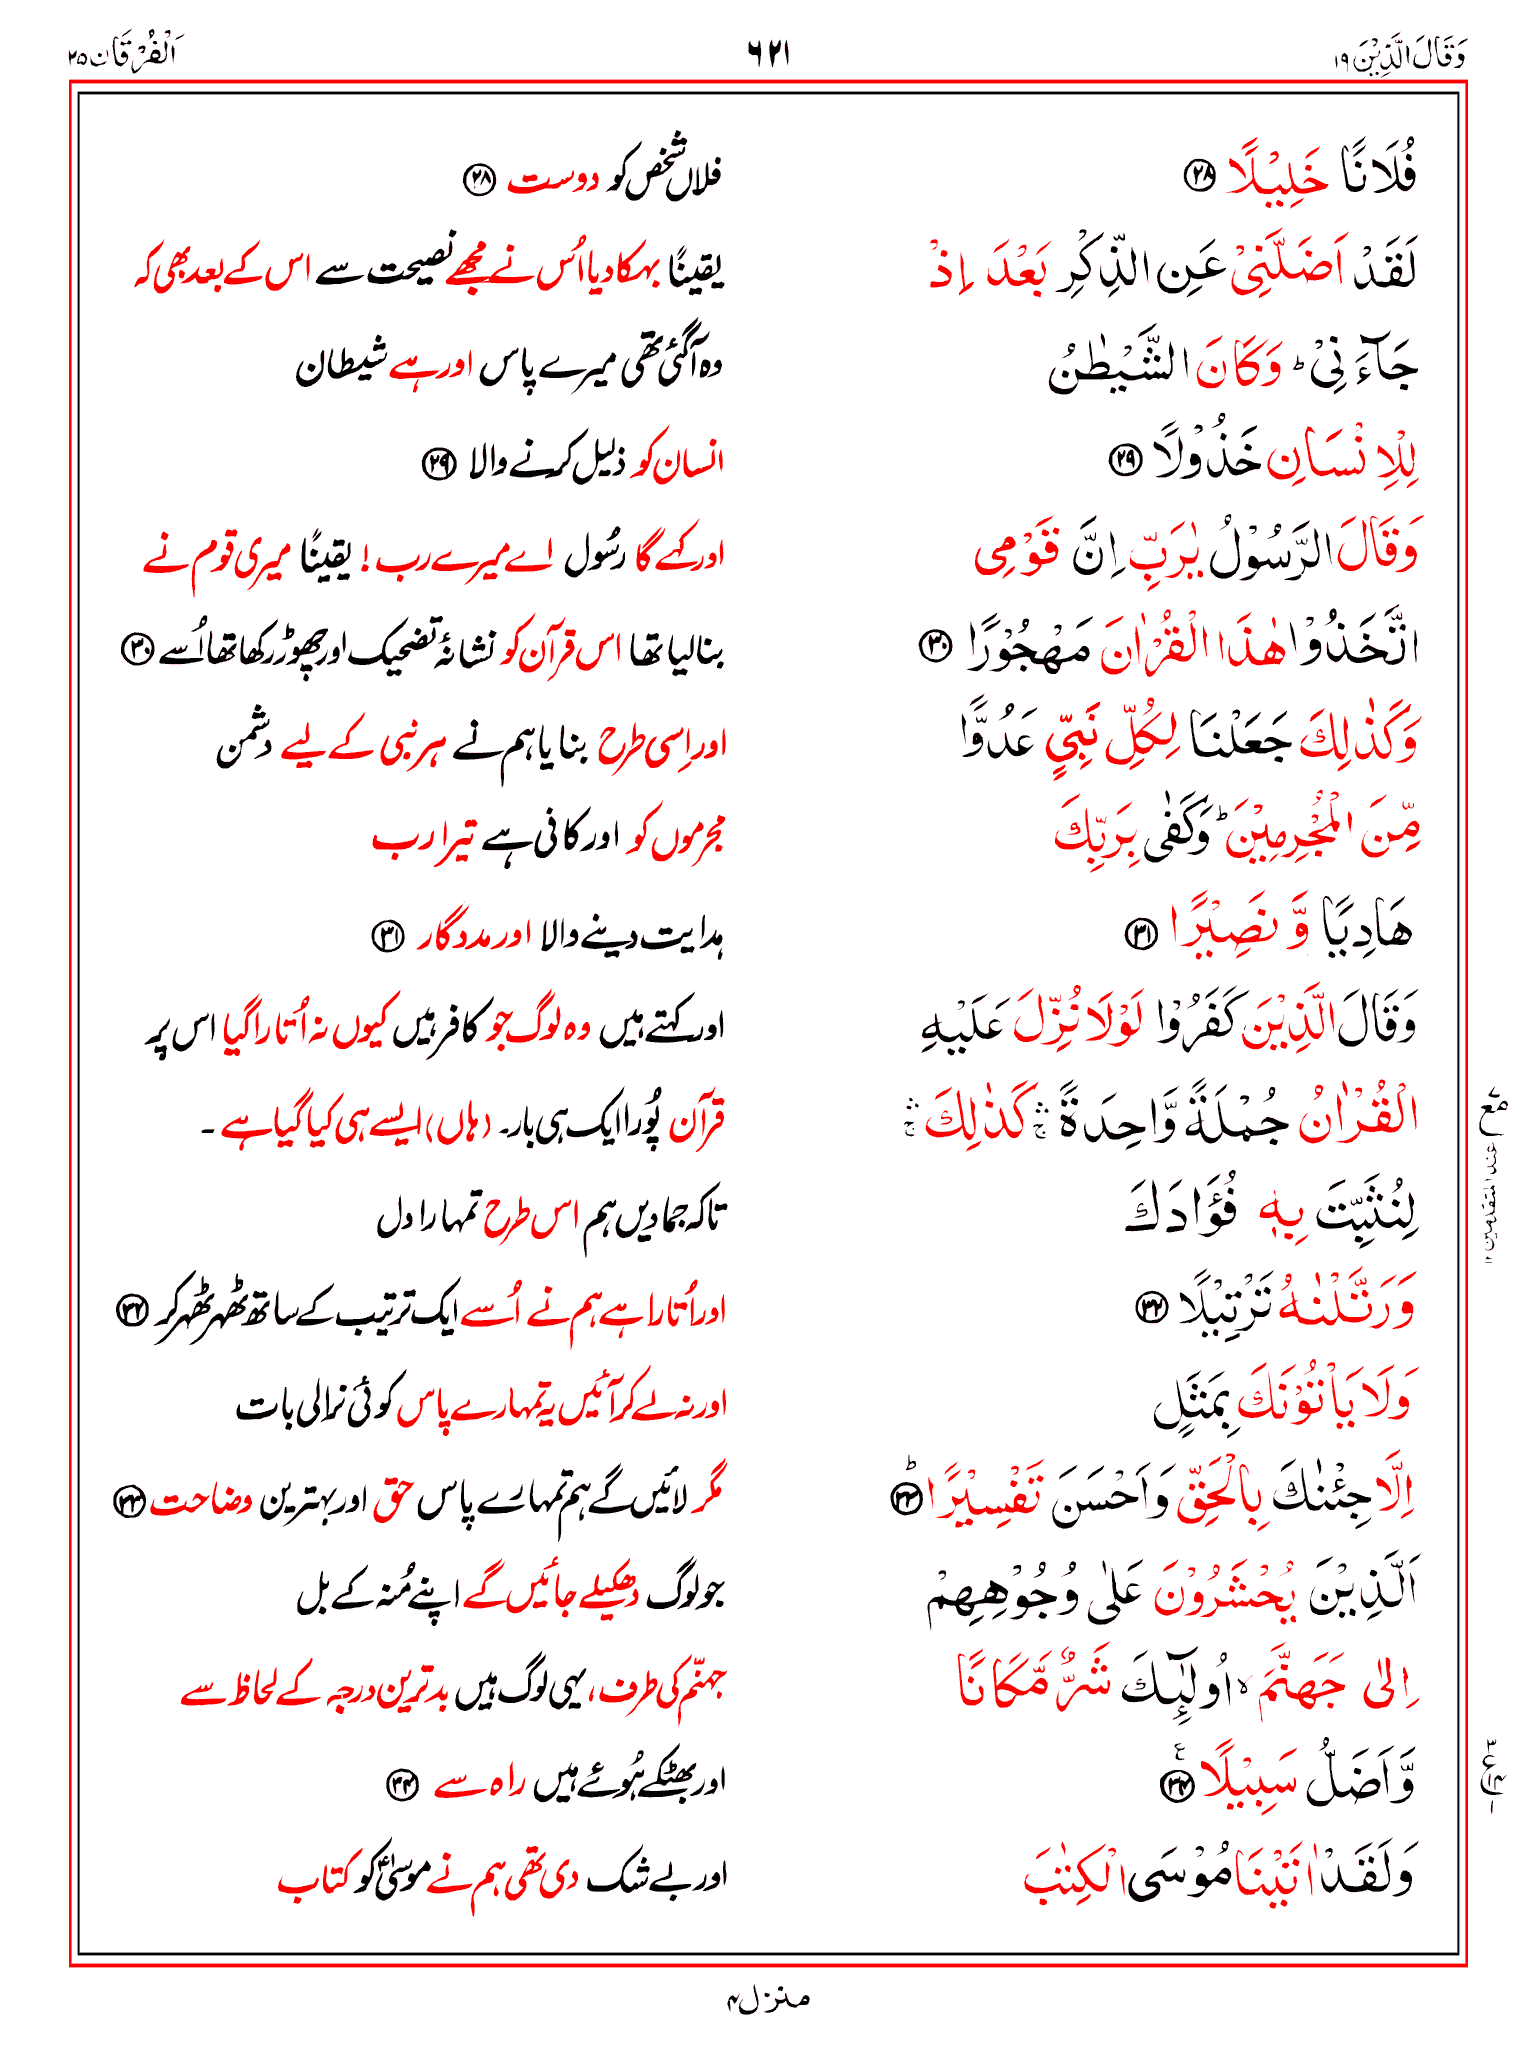 وَقَالَ الَّذِیْنَ ۱۹ ۶۲۱ اَلْفُرْقَان ۲۵
فُلَانًا خَلِیْلًا ﴿۲۸﴾ فلاں شخص کو دوست ﴿۲۸﴾
لَقَدْ اَضَلَّنِیْ عَنِ الذِّكْرِ بَعْدَ اِذْ یقینًا بہکا دیا اُس نے مجھے نصیحت سے اس کے بعد بھی کہ
جَآءَنِیْ ؕ وَكَانَ الشَّیْطٰنُ وہ آگئی تھی میرے پاس اور ہے شیطان
لِلْاِنْسَانِ خَذُوْلًا ﴿۲۹﴾ انسان کو ذلیل کرنے والا ﴿۲۹﴾
وَقَالَ الرَّسُوْلُ یٰرَبِّ اِنَّ قَوْمِی اور کہے گا رسُول اے میرے رب! یقینًا میری قوم نے
اتَّخَذُوْا هٰذَا الْقُرْاٰنَ مَهْجُوْرًا ﴿۳۰﴾ بنالیا تھا اس قرآن کو نشانۂ تضحیک اور چھوڑ رکھا تھا اُسے ﴿۳۰﴾
وَكَذٰلِكَ جَعَلْنَا لِكُلِّ نَبِیٍّ عَدُوًّا اور اِسی طرح بنایا ہم نے ہر نبی کے لیے دشمن
مِّنَ الْمُجْرِمِیْنَ ؕ وَكَفٰی بِرَبِّكَ مجرموں کو اور کافی ہے تیرا رب
هَادِیًا وَّ نَصِیْرًا ﴿۳۱﴾ ہدایت دینے والا اور مددگار ﴿۳۱﴾
وَقَالَ الَّذِیْنَ كَفَرُوْا لَوْلَا نُزِّلَ عَلَیْهِ اور کہتے ہیں وہ لوگ جو کافر ہیں کیوں نہ اُتارا گیا اس پر
الْقُرْاٰنُ جُمْلَةً وَّاحِدَةً ۛۚ كَذٰلِكَ ۛۚ قرآن پُورا ایک ہی بار۔ (ہاں) ایسے ہی کیا گیا ہے ۔
لِنُثَبِّتَ بِهٖ فُؤَادَكَ تاکہ جمادیں ہم اس طرح تمہارا دل
وَرَتَّلْنٰهُ تَرْتِیْلًا ﴿۳۲﴾ اور اُتارا ہے ہم نے اُسے ایک ترتیب کے ساتھ ٹھہر ٹھہر کر ﴿۳۲﴾
وَلَا یَاْتُوْنَكَ بِمَثَلٍ اور نہ لے کر آئیں یہ تمہارے پاس کوئی نرالی بات
اِلَّا جِئْنٰكَ بِالْحَقِّ وَاَحْسَنَ تَفْسِیْرًا ﴿۳۳﴾ؕ مگر لائیں گے ہم تمہارے پاس حق اور بہترین وضاحت ﴿۳۳﴾
اَلَّذِیْنَ یُحْشَرُوْنَ عَلٰی وُجُوْهِهِمْ جو لوگ دھکیلے جائیں گے اپنے مُنہ کے بل
اِلٰی جَهَنَّمَ ۙ اُولٰٓئِكَ شَرٌّ مَّكَانًا جہنّم کی طرف، یہی لوگ ہیں بدترین درجہ کے لحاظ سے
وَّاَضَلُّ سَبِیْلًا ﴿۳۴﴾ اور بھٹکے ہُوئے ہیں راہ سے ﴿۳۴﴾
وَلَقَدْ اٰتَیْنَا مُوْسَی الْكِتٰبَ اور بے شک دی تھی ہم نے موسیٰؑ کو کتاب
مع
عند المتقدمین ۱۲
منزل ۴